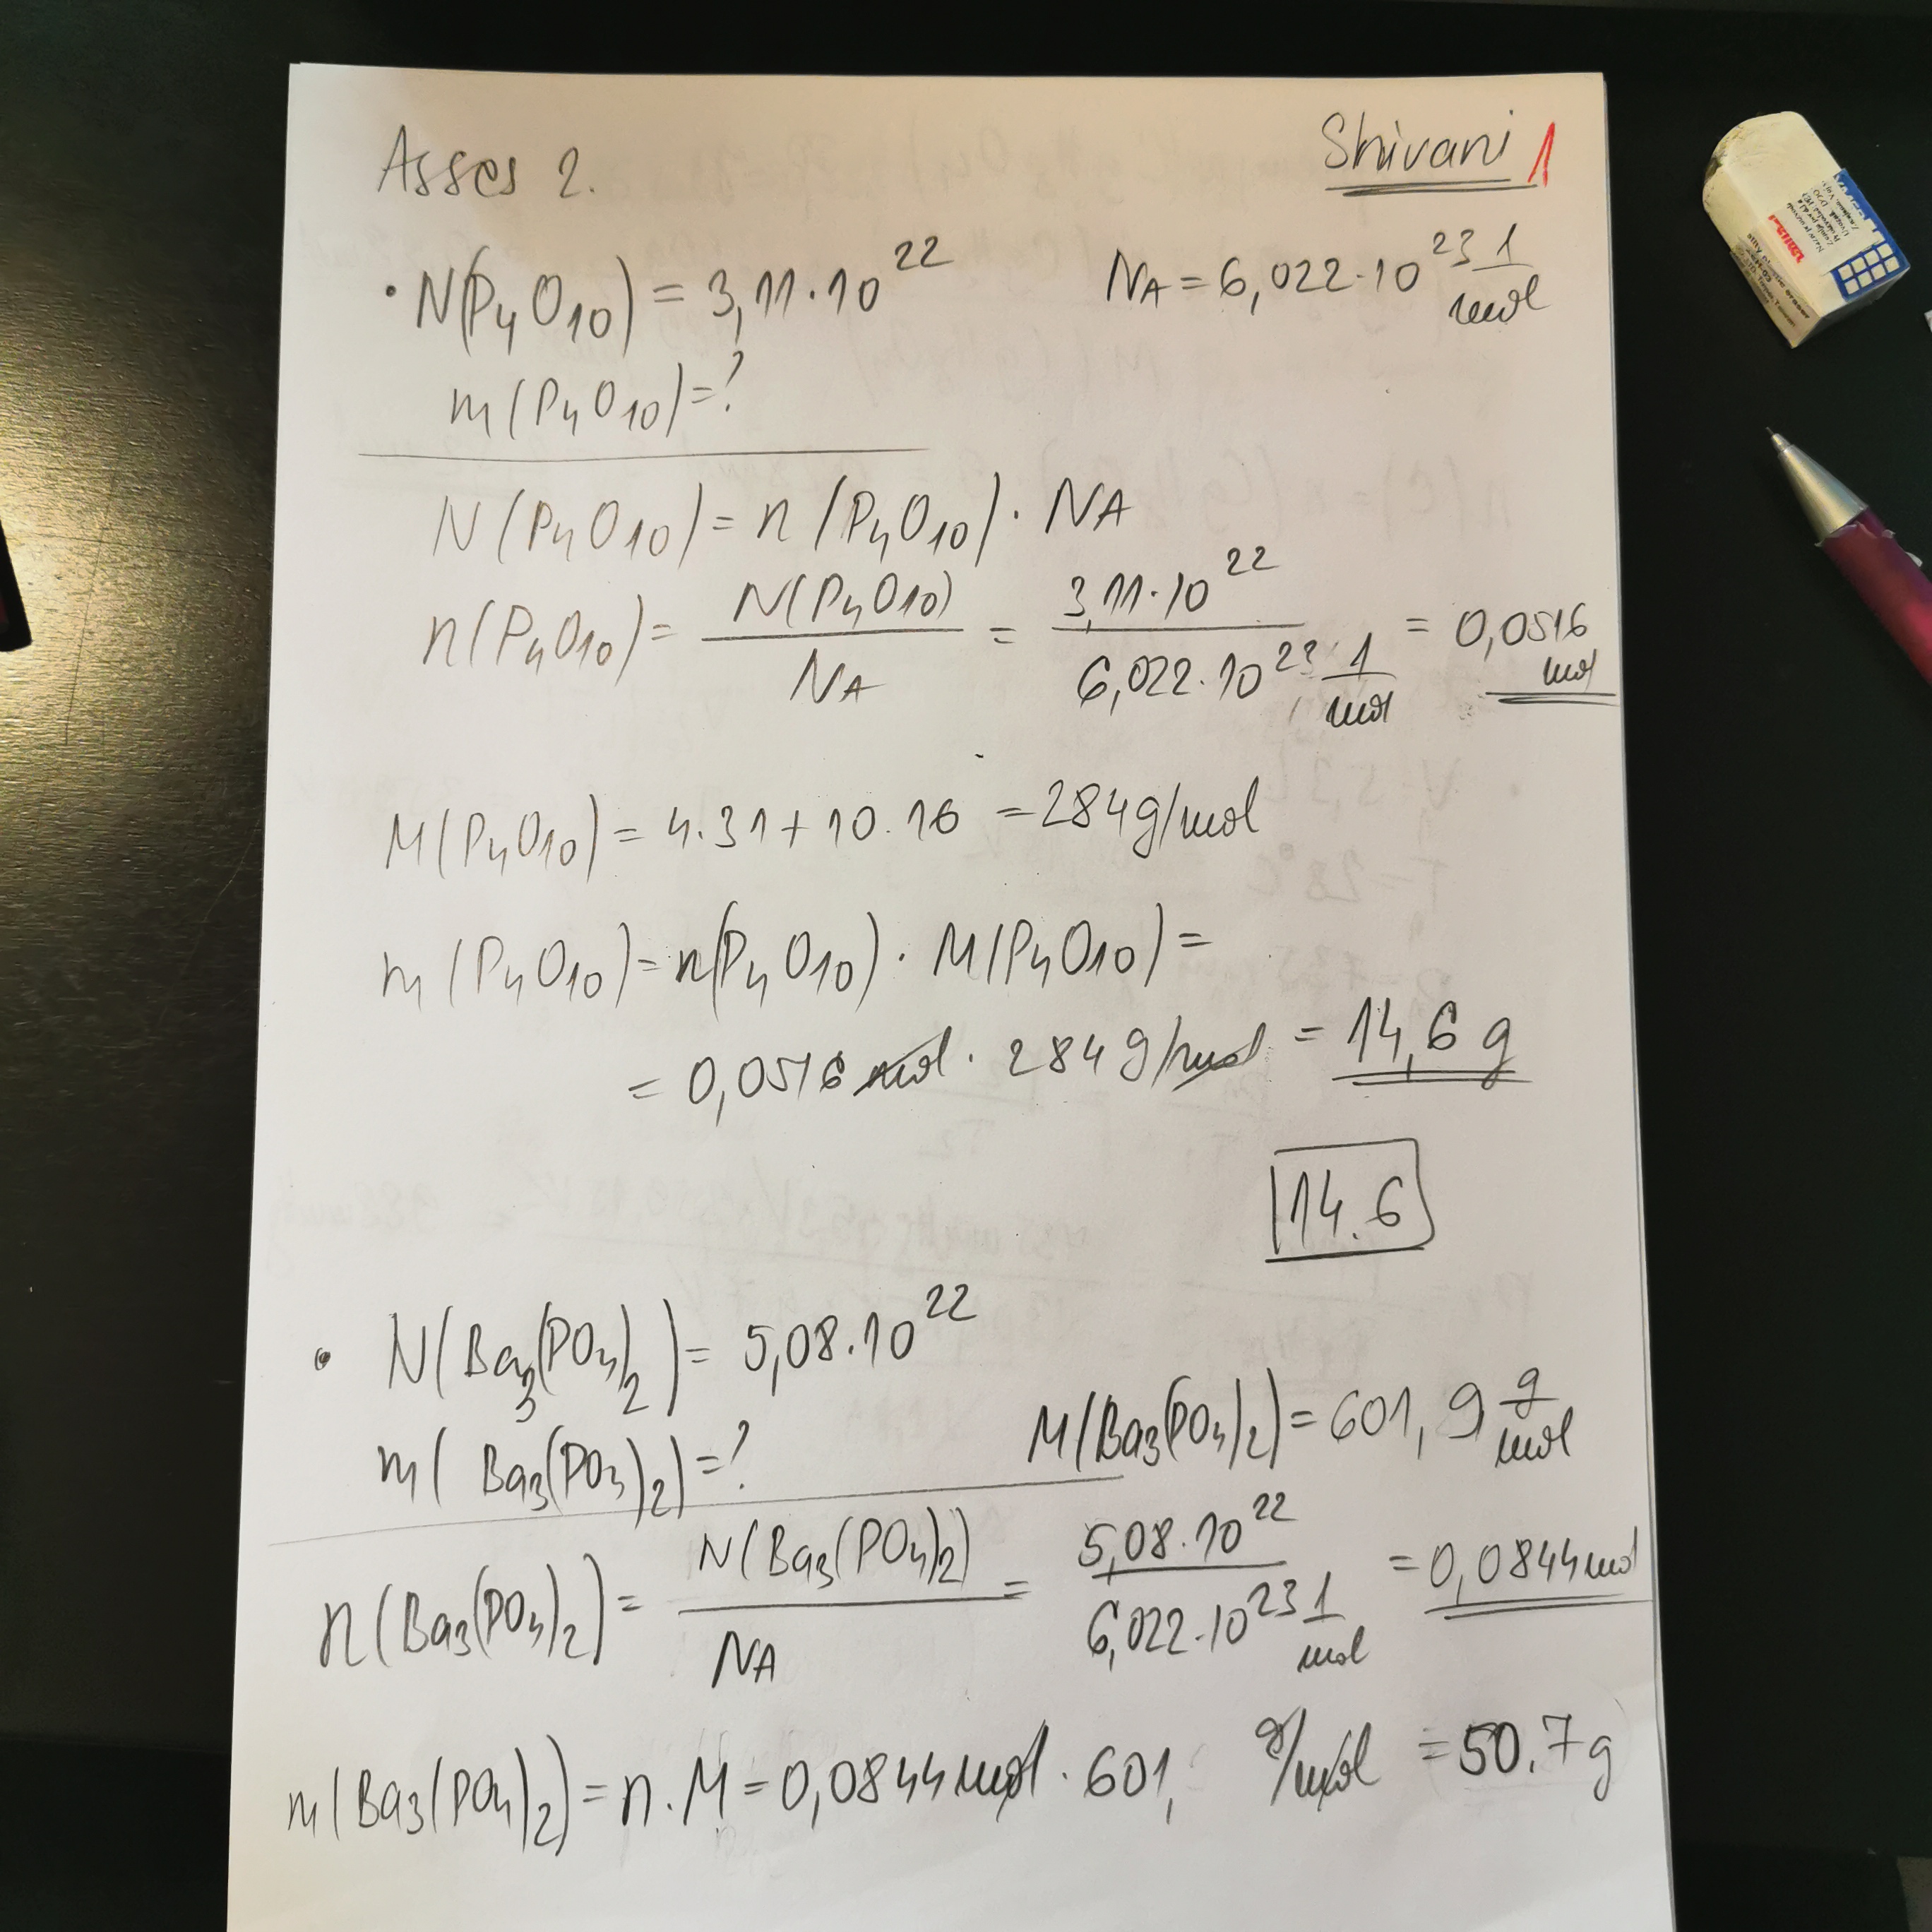 Asses 2.
Shivani 1
• N(P4O10) = 3,11·10^22
NA = 6,022·10^23 1/mol
m(P4O10) = ?
N(P4O10) = n(P4O10)·NA
n(P4O10) = N(P4O10)/NA = 3,11·10^22/6,022·10^23 1/mol = 0,0516 mol
M(P4O10) = 4·31+10·16 = 284g/mol
m(P4O10) = n(P4O10)·M(P4O10) =
= 0,0516 mol · 284 g/mol = 14,6 g
14.6
• N(Ba3(PO4)2) = 5,08·10^22
m(Ba3(PO4)2) = ?
M(Ba3(PO4)2) = 601,9 g/mol
n(Ba3(PO4)2) = N(Ba3(PO4)2)/NA = 5,08·10^22/6,022·10^23 1/mol = 0,0844 mol
m(Ba3(PO4)2) = n·M = 0,0844 mol · 601, g/mol = 50.7g